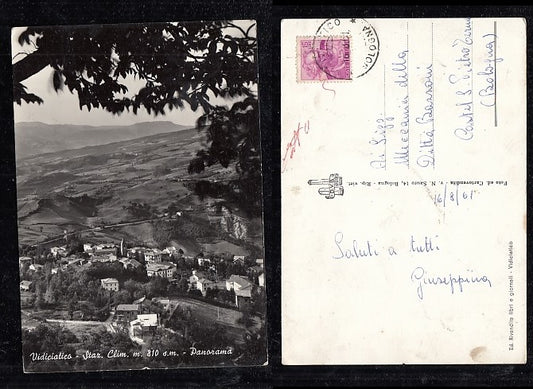 Vidiciatico - Staz. Clim. m. 810 s.m. - Panorama
BOLOGNA
Ai Sigg.
Meccania della
Ditta Barzoni
Castel S. Pietro Terme
(Bologna)
Foto ed. Cartovendita - v. N. Sauro 14, Bologna - Rip. viet.
16/8/61
Saluti a tutti
Giuseppina
Ed. Rivendita libri e giornali - Vidiciatico